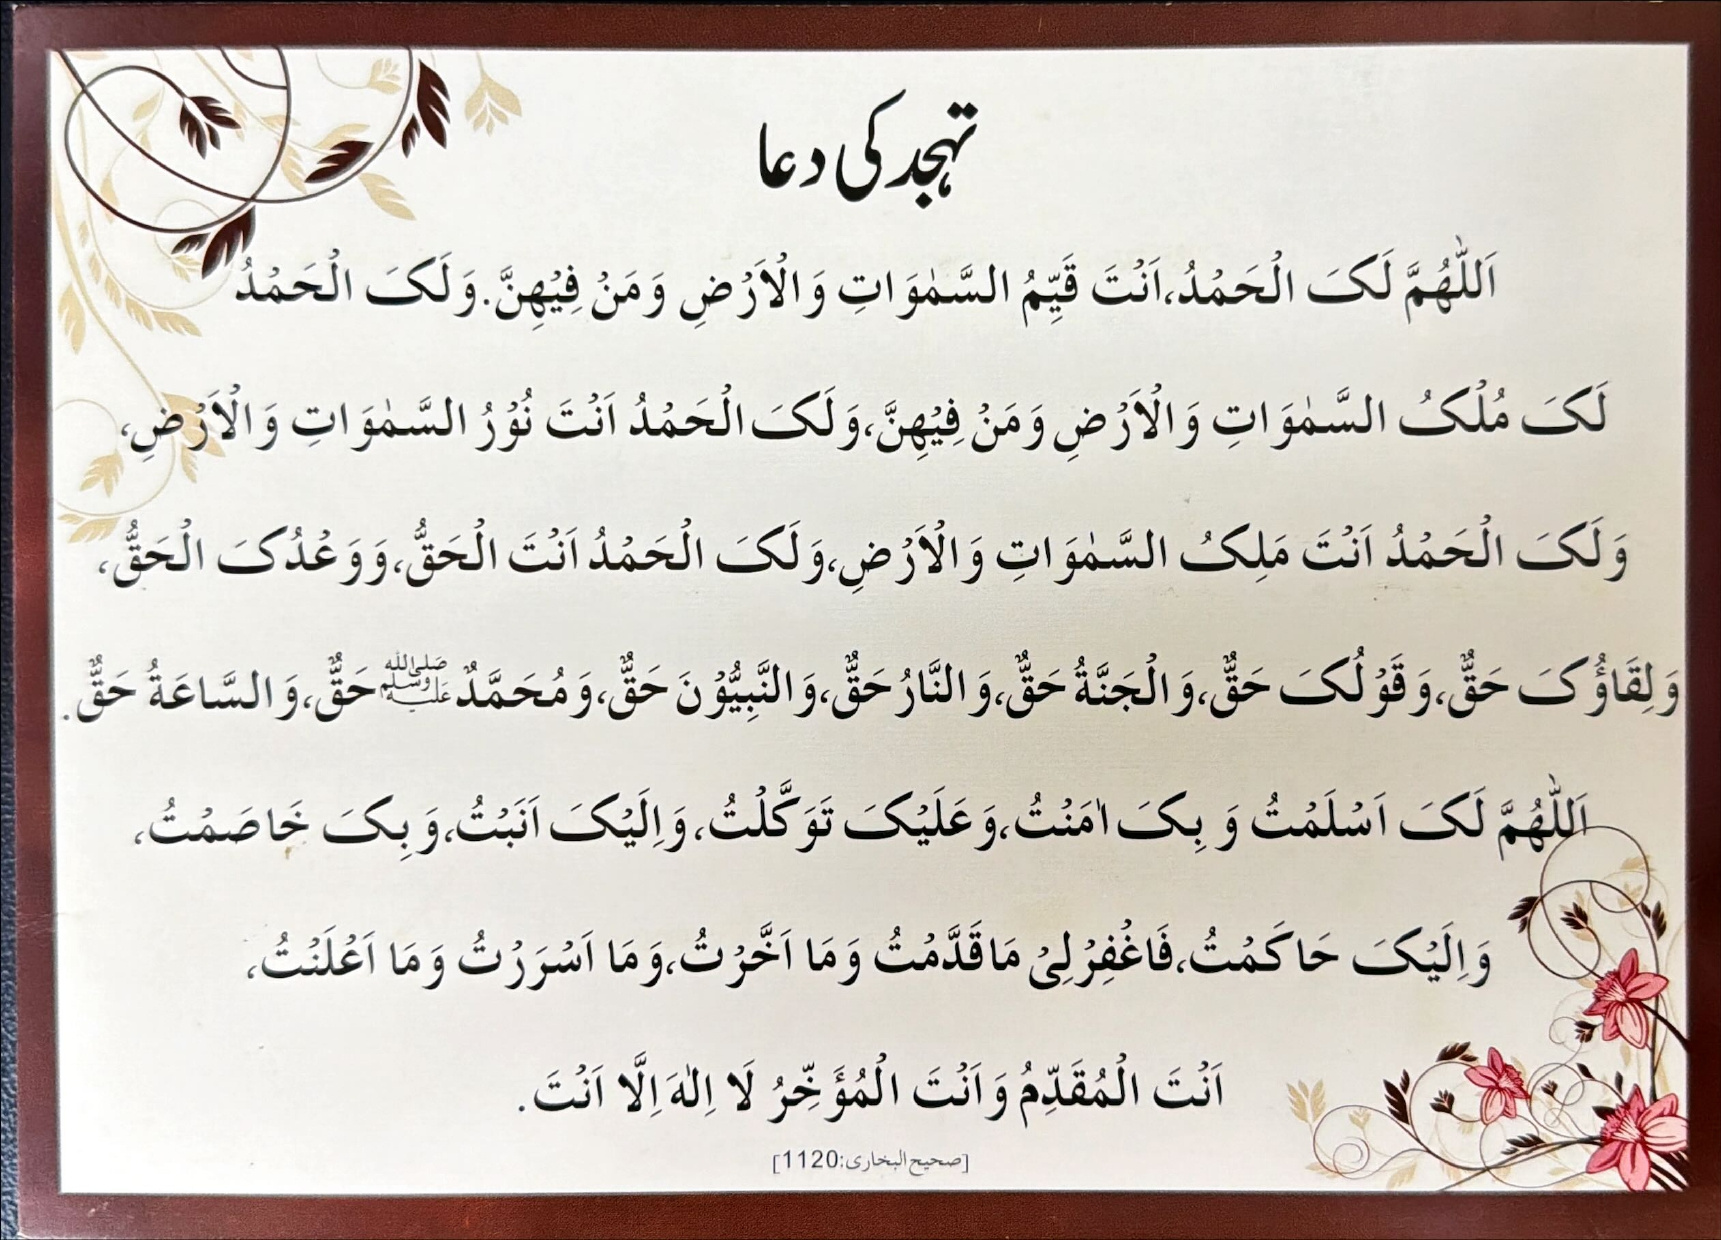 تہجد کی دعا
اَللّٰهُمَّ لَکَ الْحَمْدُ،اَنْتَ قَیِّمُ السَّمٰوَاتِ وَالْاَرْضِ وَمَنْ فِیْهِنَّ.وَلَکَ الْحَمْدُ
لَکَ مُلْکُ السَّمٰوَاتِ وَالْاَرْضِ وَمَنْ فِیْهِنَّ،وَلَکَ الْحَمْدُ اَنْتَ نُوْرُ السَّمٰوَاتِ وَالْاَرْضِ،
وَلَکَ الْحَمْدُ اَنْتَ مَلِکُ السَّمٰوَاتِ وَالْاَرْضِ،وَلَکَ الْحَمْدُ اَنْتَ الْحَقُّ،وَوَعْدُکَ الْحَقُّ،
وَلِقَاؤُکَ حَقٌّ،وَقَوْلُکَ حَقٌّ،وَالْجَنَّةُ حَقٌّ،وَالنَّارُ حَقٌّ،وَالنَّبِیُّوْنَ حَقٌّ،وَمُحَمَّدٌ ﷺ حَقٌّ،وَالسَّاعَةُ حَقٌّ.
اَللّٰهُمَّ لَکَ اَسْلَمْتُ وَ بِکَ اٰمَنْتُ،وَعَلَیْکَ تَوَکَّلْتُ،وَاِلَیْکَ اَنَبْتُ،وَبِکَ خَاصَمْتُ،
وَاِلَیْکَ حَاکَمْتُ،فَاغْفِرْلِیْ مَاقَدَّمْتُ وَمَا اَخَّرْتُ،وَمَا اَسْرَرْتُ وَمَا اَعْلَنْتُ،
اَنْتَ الْمُقَدِّمُ وَاَنْتَ الْمُؤَخِّرُ لَا اِلٰهَ اِلَّا اَنْتَ.
[صحیح البخاری:1120]